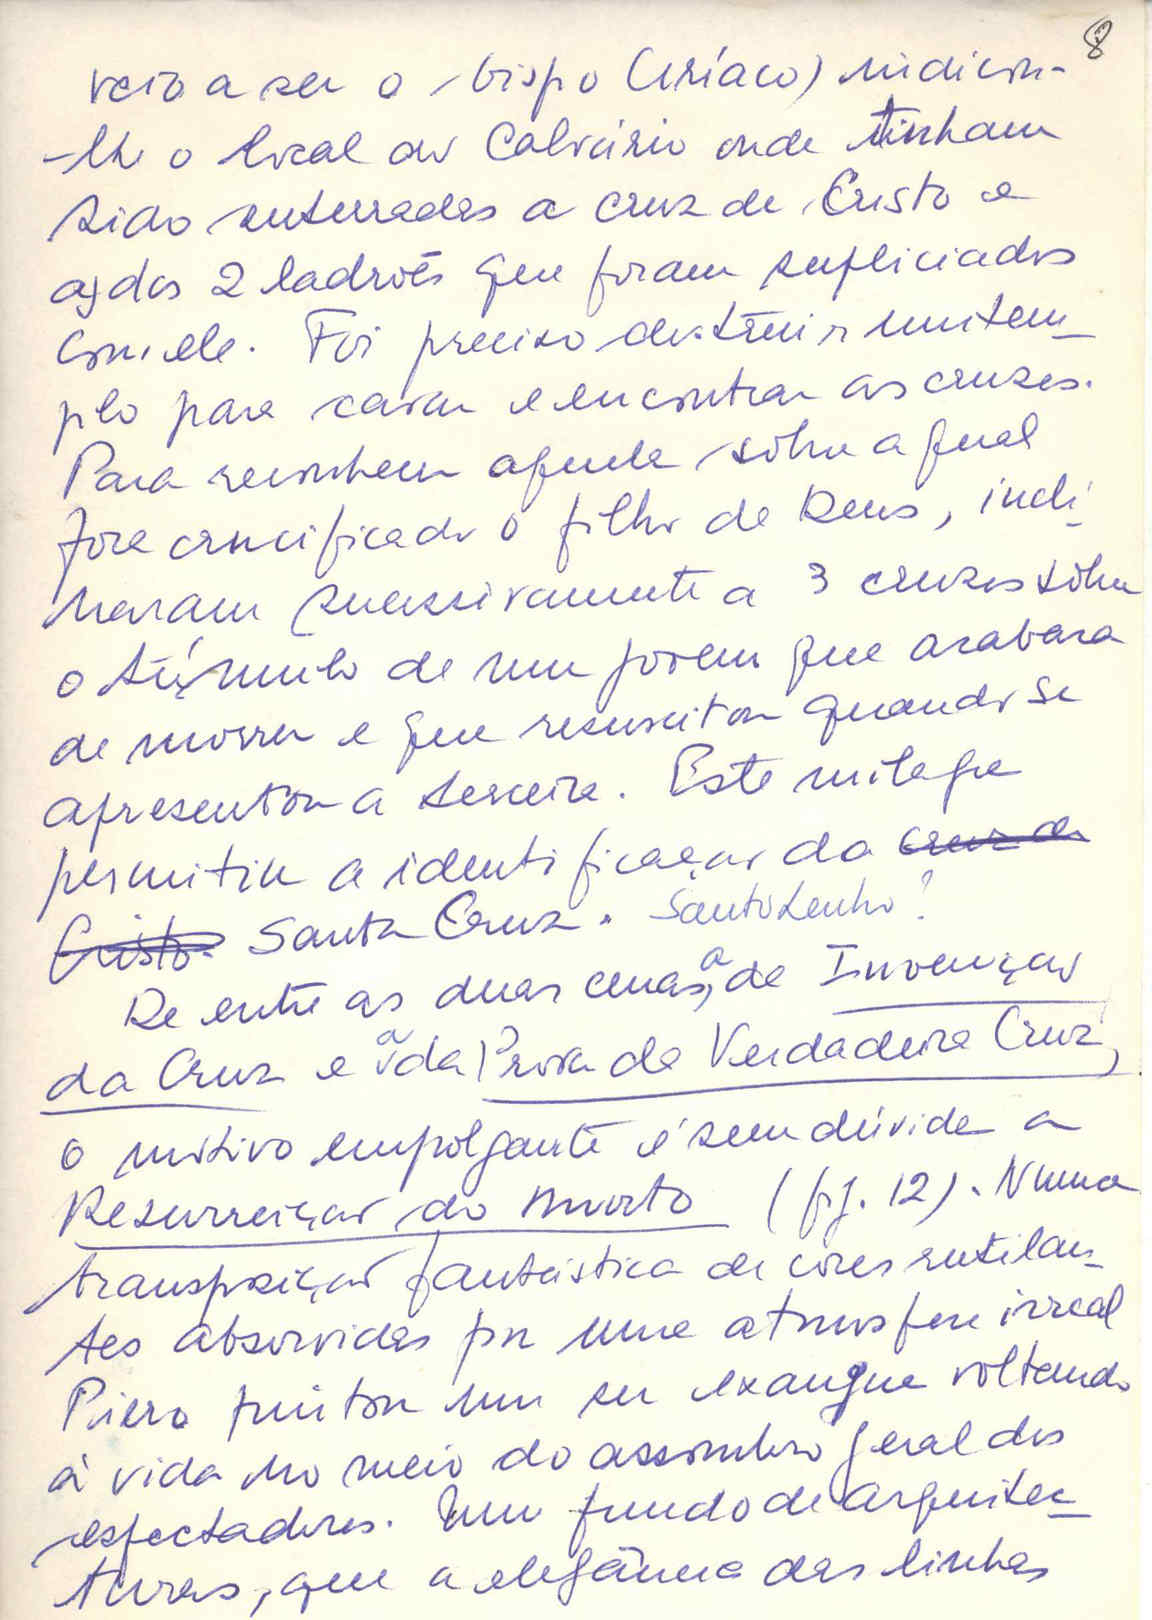 8
veio a ser o bispo Ciríaco) indicou-
-lhe o local do Calvário onde tinham
sido enterradas a cruz de Cristo e
as dos 2 ladrões que foram supliciados
com ele. Foi preciso destruir um tem-
plo para cavar e encontrar as cruzes.
Para reconhecer aquela sôbre a qual
fora crucificado o filho de Deus, incli-
naram sucessivamente a 3 cruzes sôbre
o túmulo de um jovem que acabara
de morrer e que resuscitou quando se
apresentou a terceira. Este milagre
permitiu a identificação da cruz de
Cristo. Santa Cruz. Santo Lenho?
De entre as duas cenas, a de Invenção
da Cruz e a da Prova da Verdadeira Cruz,
o motivo empolgante é sem dúvida a
Resurreição do morto (fig. 12). Numa
transposição fantástica de côres rutilan-
tes absorvidas por uma atmosfera irreal
Piero pintou um ser exangue voltando
à vida no meio do assombro geral dos
espectadores. Num fundo de arquitec-
turas, que a elegância das linhas